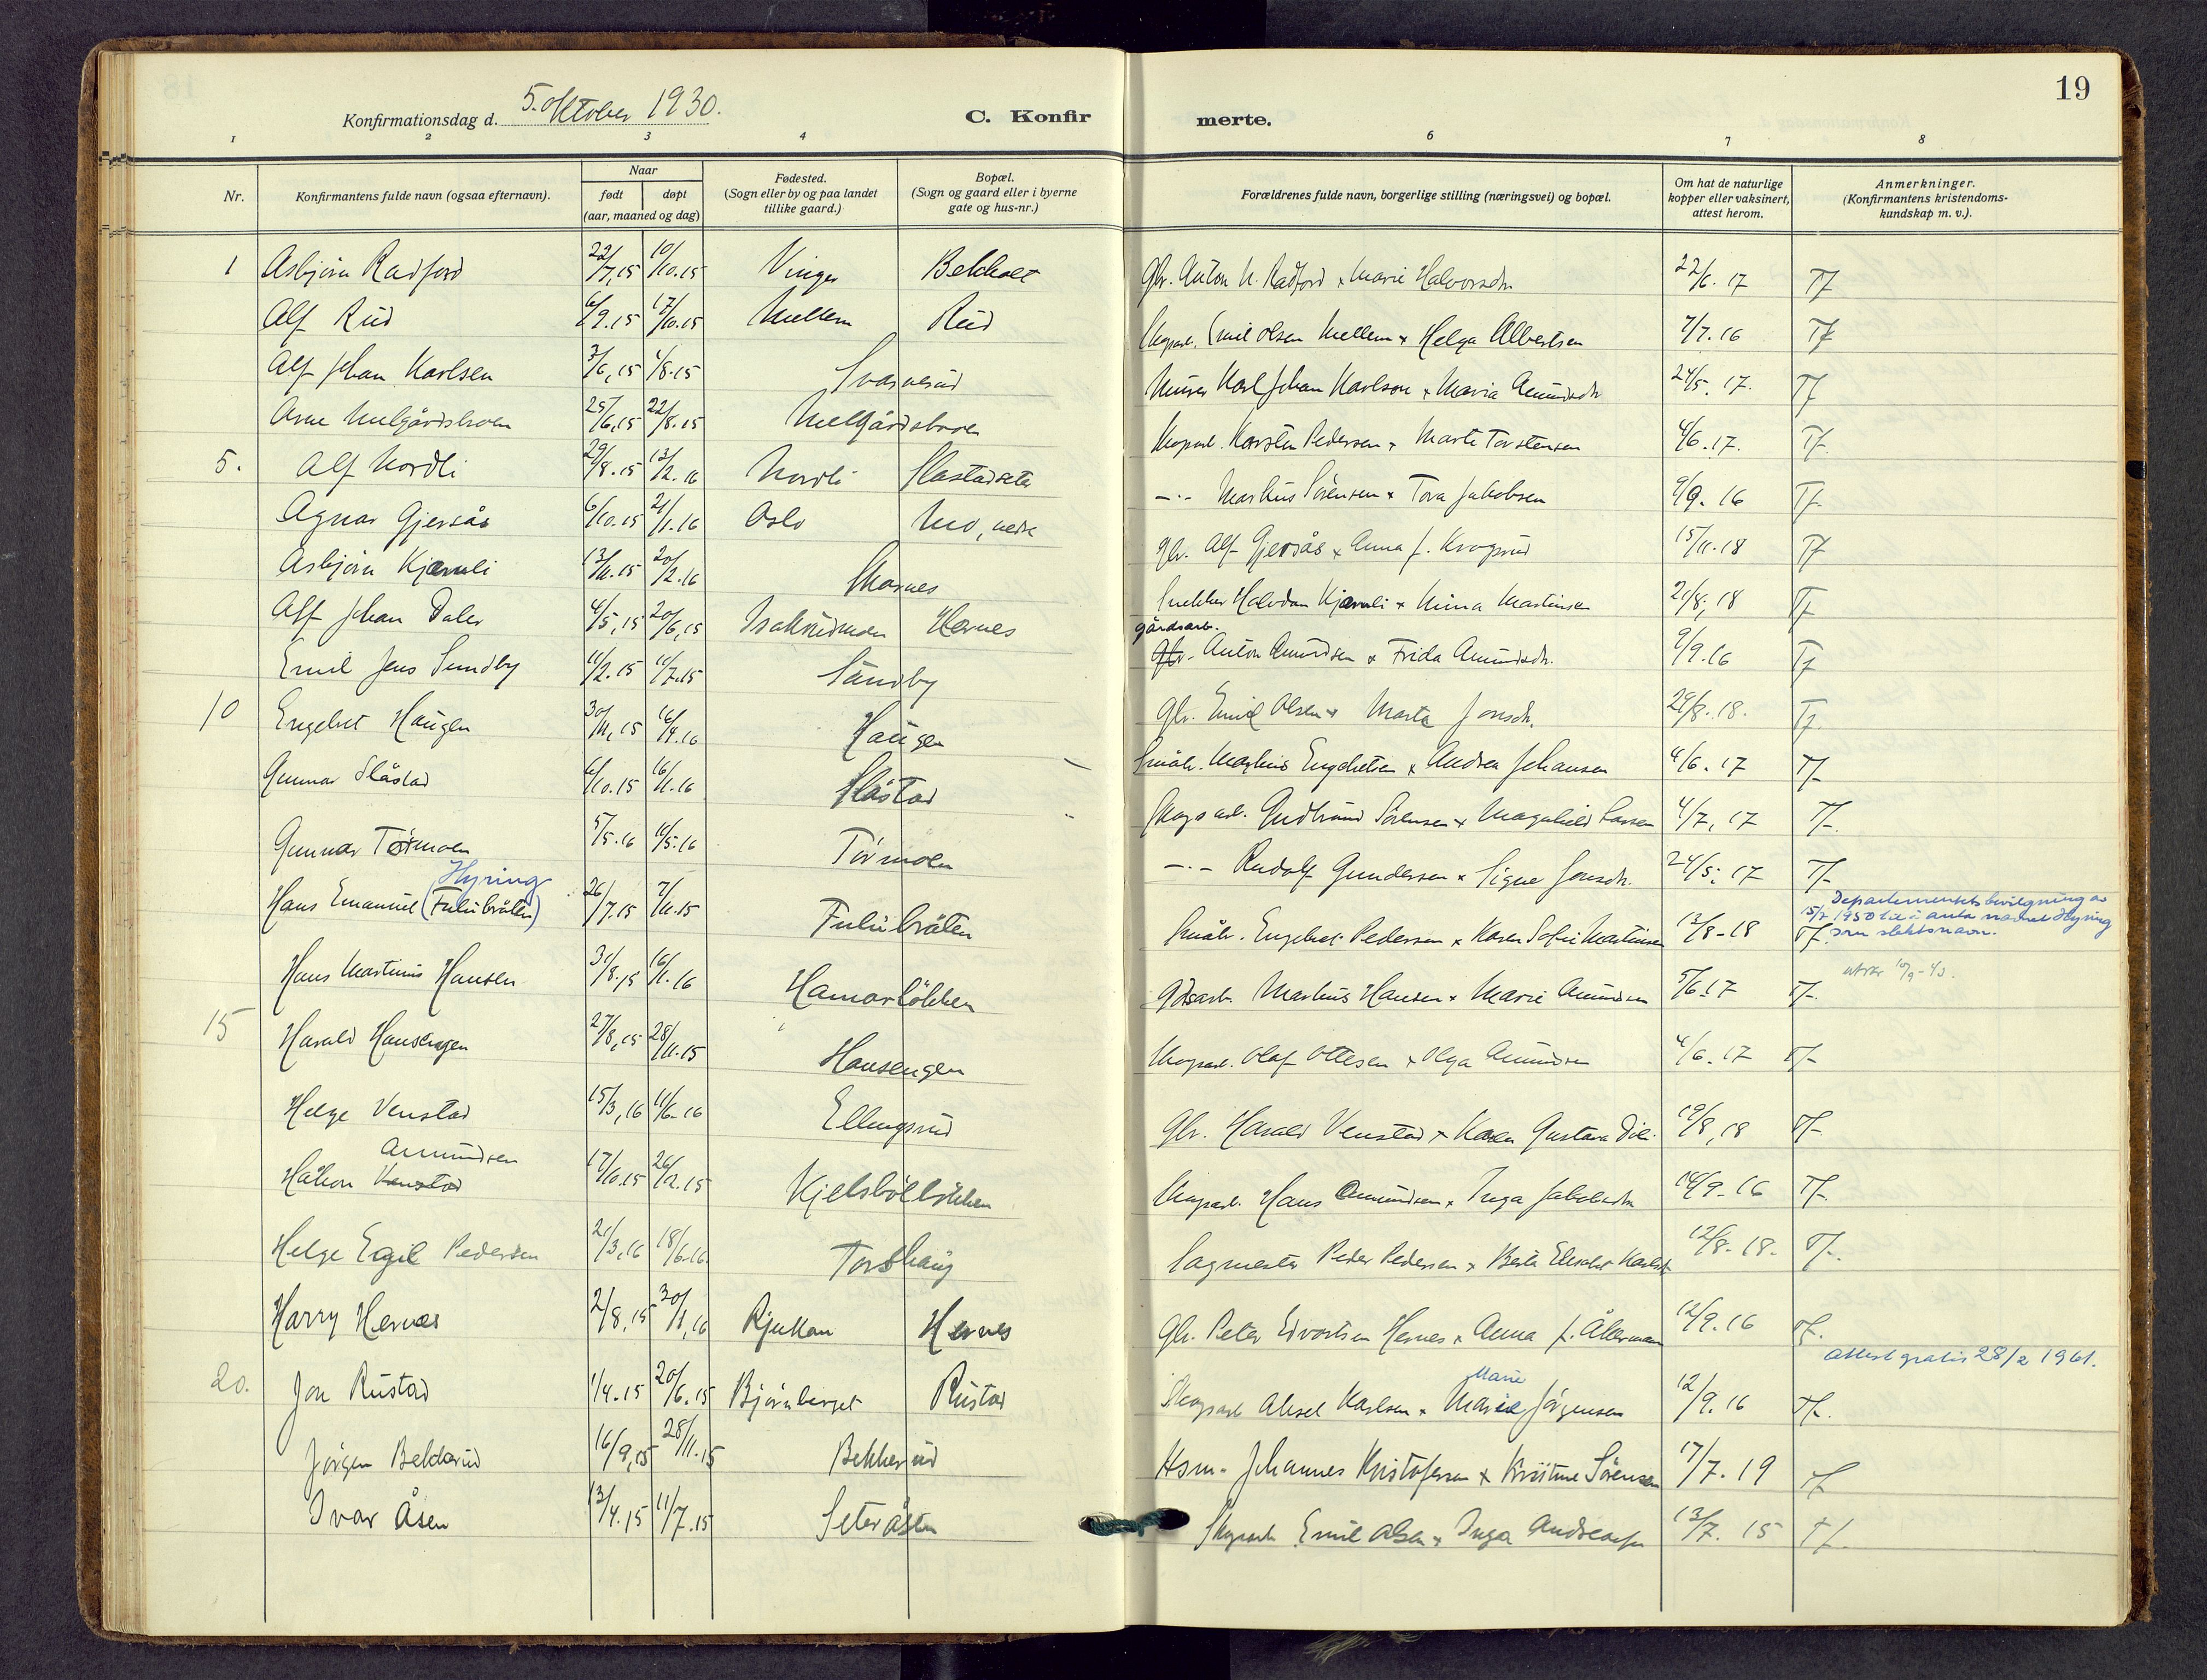 19
Konfirmationsdag d. 5. oktober 1930.
C. Konfirmerte.
1 2 3 4 6 7 8
Nr.
Konfirmantens fulde navn (ogsaa efternavn).
Naar
født døpt
(aar, maaned og dag)
Fødested.
(Sogn eller by og paa landet
tillike gaard.)
Bopæl.
(Sogn og gaard eller i byerne
gate og hus-nr.)
Forældrenes fulde navn, borgerlige stilling (næringsvei) og bopæl.
Om hat de naturlige
kopper eller vaksinert,
attest herom.
Anmerkninger.
(Konfirmantens kristendoms-
kundskap m. v.).
1 Asbjørn Radford 22/7,15 10/10.15 Vinger Bekholt Gbr. Anton N. Radford x Marie Halvorsdtr. 22/6. 17 Tf
Alf Rud 6/9.15 17/10.15 Mellem Rud Skogsarb. Emil Olsen Mellem x Helga Albertsen 7/7. 16 Tf
Alf Johan Karlsen 3/6,15 1/8.15 Svarverud Murer Karl Johan Karlson x Maria Amundsdtr 24/5. 17. Tf
Arne Melgårdsbroen 25/6,15 22/8.15 Melgårdsbroen Skogsarb. Karsten Pedersen x Marte Torstensen 4/6. 17. Tf.
5. Alf Nordli 29/8.15 13/2.16 Nordli Slastadseter -.- Markus Sörensen x Tora Jakobsen 9/9. 16 Tf.
Agnar Gjersås 6/10.15 21/1.16 Oslo Mo, nedre Gbr. Alf Gjersås x Anna f. Krogsrud 15/11.18 Tf
Asbjørn Kjærnli 13/11.15 20/2.16 Skarnes Snekker Halvdan Kjærnli x Mina Martinsen 21/8, 18 Tf
Alf Johan Daler 4/5,15 20/6,15 Isakrudmoen Hernes gårdsarb. Gbr. Anton Amundsen x Frida Amundsdtr. 9/9.16 Tf
Emil Jens Sundby 11/2.15 11/7.15 Sundby Gbr. Emil Olsen x Marta Jonsdtr. 29/8. 18. Tf.
10 Engebret Haugen 30/11,15 16/4.16 Haugen Småbr. Markus Engebretsen x Andrea Johansen 4/6. 17 Tf
Gunnar Slåstad 6/10.15 16/11.16 Slåstad Skogsarb. Gudbrand Sörensen x Magnhild Larsen 4/7, 17 Tf.
Gunnar Tørmoen 5/5.16 11/5.16 Törmoen -.- Rudolf Gundersen x Signe Jonsdtr. 24/5. 17 Tf
Hyring
Hans Emanuel (Fulubråten) 26/7.15 7/11.15 Fulubråten Småbr. Engebret Pedersen x Karen Sofie Martinsen 13/8-18 Tf.
Departementets bevilgning av
15/2 1950 til å anta navnet Hyring
som slektsnavn.
Hans Martinius Hansen 31/8.15 16/1.16 Hamarlökken Gdsarb. Markus Hansen x Marie Amundsen 5/6.17 Tf.
15 Harald Hansengen 27/8,15 28/11.15 Hansengen Skogsarb. Olaf Ottesen x Olga Amundsen 4/6. 17 Tf
Helge Venstad 15/3,16 11/6.16 Ellingsrud Gbr. Harald Venstad x Karen Gustava Dili. 19/8,18 Tf
Amundsen
Håkon Venstad 17/10.15 26/12.15 Kjelsböllökken Skogsarb. Hans Amundsen x Inga Jakobsdtr 14/9-16 Tf.
Helge Egil Pedersen 21/3,16 18/6.16. Torshaug Sagmester Peder Pedersen x Berta Elisabet Karlsdtr 12/8-18. Tf.
Harry Hernes 2/8,15 30/1,16 Rjukan Hernes Gbr. Peter Edvardsen Hernes x Anna f. Åkermann 12/9.16 Tf.
Attest gratis 28/2 1961.
20. Jon Rustad 1/4.15 20/6.15 Björnberget Rustad Marie
Skogsarb Aksel Karlsen x Marie Jörgensen 12/9.16 Tf.
Jörgen Bekkerud 16/9,15 28/11.15 Bekkerud Hsm. Johannes Kristofersen x Kristine Sörensen 17/7. 19 Tf
Ivar Åsen 13/4.15 11/7.15 Seteråsen Skogsarb Emil Olsen x Inga Andreasen 13/7. 15 Tf.